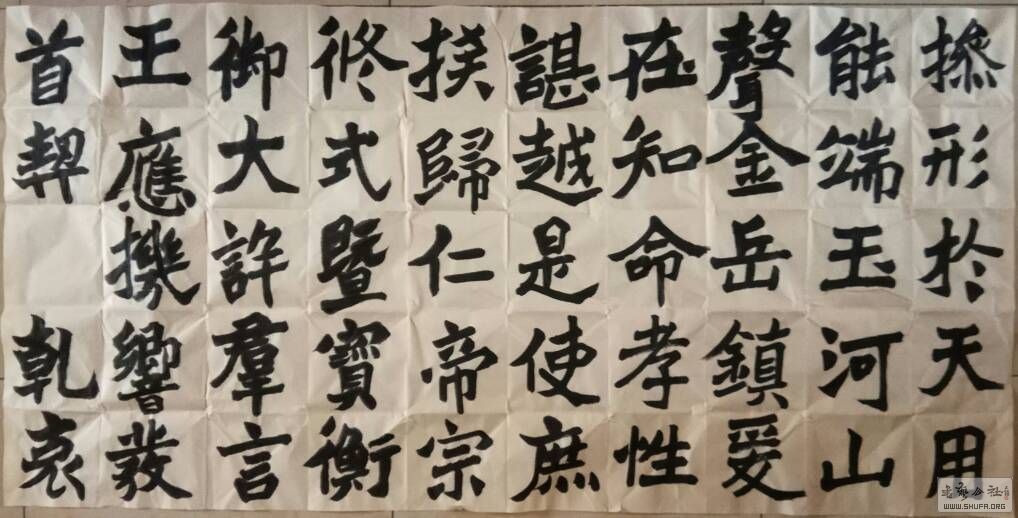 形於天用
能端玉河山
聲金岳鎮爰
在知命孝性
諶越是使庶
揆歸仁帝宗
修式暨寶衡
御大許羣言
王應機響發
首契乾
WWW.SHUFA.ORG